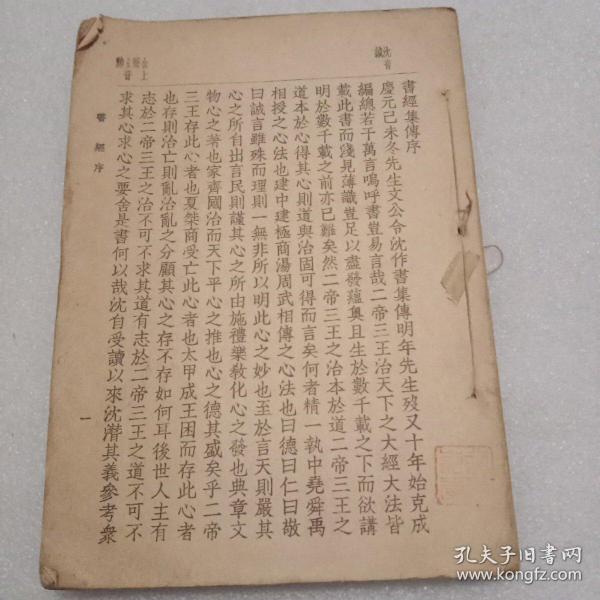 書經集傳序
慶元己未冬先生文公令沈作書集傳明年先生歿又十年始克成
編總若干萬言嗚呼書豈易言哉二帝三王治天下之大經大法皆
載此書而淺見薄識豈足以盡發蘊奧且生於數千載之下而欲講
明於數千載之前亦已難矣然二帝三王之治本於道二帝三王之
道本於心得其心則道與治固可得而言矣何者精一執中堯舜禹
相授之心法也建中建極商湯周武相傳之心法也曰德曰仁曰敬
曰誠言雖殊而理則一無非所以明此心之妙也至於言天則嚴其
心之所自出言民則謹其心之所由施禮樂教化心之發也典章文
物心之著也家齊國治而天下平心之推也心之德其盛矣乎二帝
三王存此心者也夏桀商受亡此心者也太甲成王困而存此心者
也存則治亡則亂治亂之分顧其心之存不存如何耳後世人主有
志於二帝三王之治不可不求其道有志於二帝三王之道不可不
求其心求心之要舍是書何以哉沈自受讀以來沈潛其義參考衆
書經序
一
沈音
孔夫子旧书网
www.kongfz.com